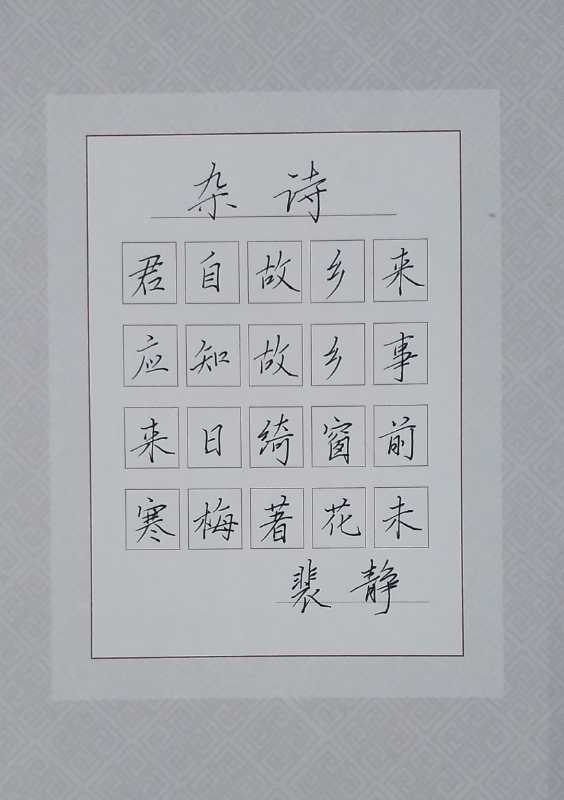 杂诗
君自故乡来
应知故乡事
来日绮窗前
寒梅著花未
裴静